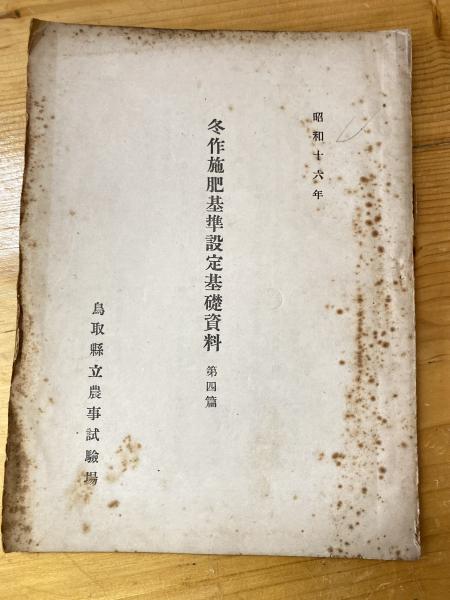 昭和十六年
冬作施肥基準設定基礎資料 第四篇
鳥取縣立農事試驗場